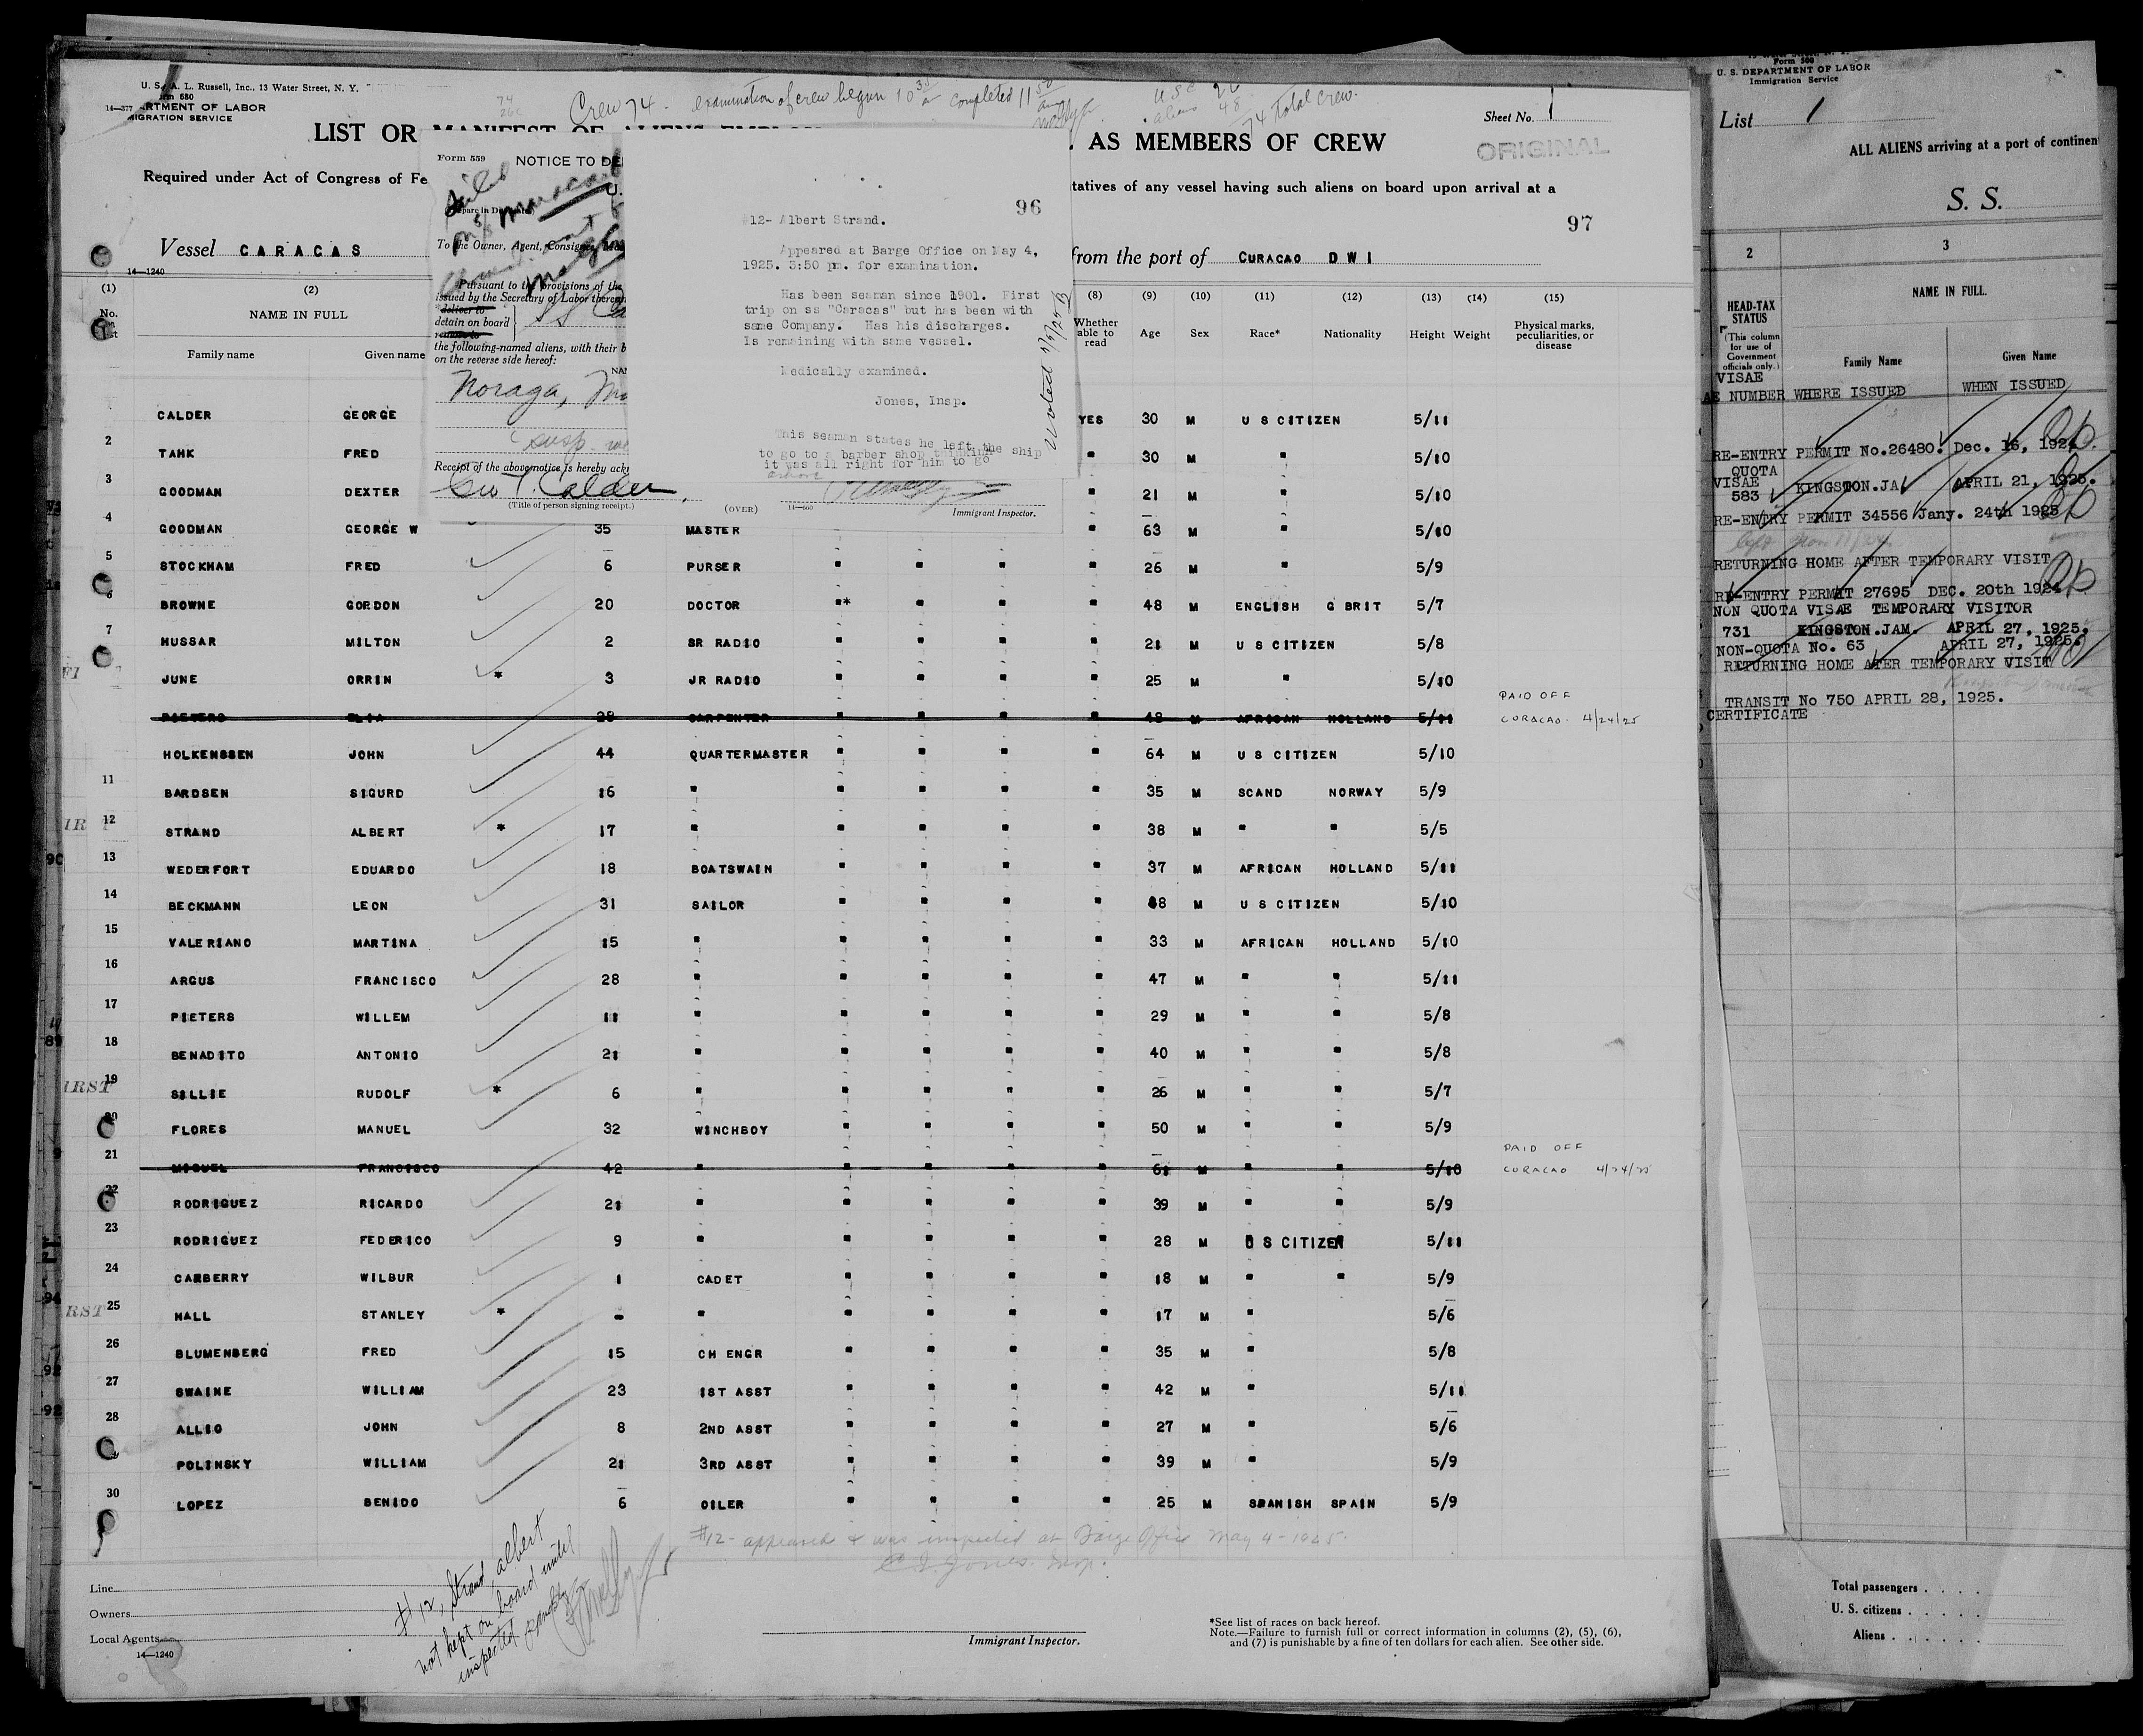 U. S. A. L. Russell, Inc., 13 Water Street, N. Y.
Form 680
14—377 ARTMENT OF LABOR
MIGRATION SERVICE
Crew 74 - examination of crew begun 10 30 a completed 11 50 am
USC 26
aliens 48
74 Total crew.
Sheet No. 1
ORIGINAL
LIST OR MANIFEST OF ALIENS EMPLOY
AS MEMBERS OF CREW
Required under Act of Congress of Fe
tatives of any vessel having such aliens on board upon arrival at a
97
Vessel CARACAS
from the port of CURACAO D W I
14—1240
Form 559 NOTICE TO DE
U.
To the Owner, Agent, Consignee,
Pursuant to the provisions of the
issued by the Secretary of Labor thereun
deliver to
detain on board
remove to
SS Ca
the following-named aliens, with their b
on the reverse side hereof:
NA
Noraga, Ma
Receipt of the above notice is hereby ack
Geo T. Calder
(Title of person signing receipt.)
(OVER)
Immigrant Inspector.
96
#12- Albert Strand.
Appeared at Barge Office on May 4,
1925. 3:50 pm. for examination.
Has been seaman since 1901. First
trip on ss "Caracas" but has been with
same Company. Has his discharges.
Is remaining with same vessel.
Medically examined.
Jones, Insp.
This seaman states he left the ship
to go to a barber shop thinking
it was all right for him to go
ashore
Noted 5/5/25
(1) (2) (8) (9) (10) (11) (12) (13) (14) (15)
No. NAME IN FULL Family name Given name Whether able to read Age Sex Race* Nationality Height Weight Physical marks, peculiarities, or disease
CALDER GEORGE YES 30 M U S CITIZEN 5/11
2 TAHK FRED " 30 M " 5/10
3 GOODMAN DEXTER " 21 M " 5/10
4 GOODMAN GEORGE W 35 MASTER " 63 M " 5/10
5 STOCKHAM FRED 6 PURSER " " " " 26 M " 5/9
6 BROWNE GORDON 20 DOCTOR "* " " " 48 M ENGLISH G BRIT 5/7
7 HUSSAR MILTON 2 SR RADIO " " " " 21 M U S CITIZEN 5/8
JUNE ORRIN * 3 JR RADIO " " " " 25 M " 5/10
PIETERS ELIA 28 CARPENTER " " " " 48 M AFRICAN HOLLAND 5/11 PAID OFF CURACAO 4/24/25
HOLKENSSEN JOHN 44 QUARTERMASTER " " " " 64 M U S CITIZEN 5/10
11 BARDSEN SIGURD 16 " " " " " 35 M SCAND NORWAY 5/9
12 STRAND ALBERT * 17 " " " " " 38 M " " 5/5
13 WEDERFORT EDUARDO 18 BOATSWAIN " " " " 37 M AFRICAN HOLLAND 5/11
14 BECKMANN LEON 31 SAILOR " " " " 48 M U S CITIZEN 5/10
15 VALERIANO MARTINA 15 " " " " " 33 M AFRICAN HOLLAND 5/10
16 ARGUS FRANCISCO 28 " " " " " 47 M " " 5/11
17 PIETERS WILLEM 11 " " " " " 29 M " " 5/8
18 BENADITO ANTONIO 21 " " " " " 40 M " " 5/8
19 SILLIE RUDOLF * 6 " " " " " 26 M " " 5/7
20 FLORES MANUEL 32 WINCHBOY " " " " 50 M " " 5/9
21 MIGUEL FRANCISCO 42 " " " " " 61 M " " 5/10 PAID OFF CURACAO 4/24/25
22 RODRIGUEZ RICARDO 21 " " " " " 39 M " " 5/9
23 RODRIGUEZ FEDERICO 9 " " " " " 28 M U S CITIZEN 5/11
24 CARBERRY WILBUR 1 CADET " " " " 18 M " " 5/9
25 HALL STANLEY * - " " " " " 17 M " 5/6
26 BLUMENBERG FRED 15 CH ENGR " " " " 35 M " 5/8
27 SWAINE WILLIAM 23 1ST ASST " " " " 42 M " 5/11
28 ALLIO JOHN 8 2ND ASST " " " " 27 M " 5/6
POLINSKY WILLIAM 21 3RD ASST " " " " 39 M " 5/9
30 LOPEZ BENIDO 6 OILER " " " " 25 M SPANISH SPAIN 5/9
#12- appeared & was inspected at Barge Office May 4-1925.
C I Jones. Insp.
#12, Strand, albert
not kept on board until
inspected
Line
Owners
Local Agents
14—1240
Immigrant Inspector.
*See list of races on back hereof.
Note.—Failure to furnish full or correct information in columns (2), (5), (6),
and (7) is punishable by a fine of ten dollars for each alien. See other side.
Form 500
U. S. DEPARTMENT OF LABOR
Immigration Service
List 1
ALL ALIENS arriving at a port of continen
S. S.
2 3
HEAD-TAX
STATUS
(This column
for use of
Government
officials only.)
NAME IN FULL.
Family Name Given Name
VISAE
NUMBER WHERE ISSUED WHEN ISSUED
RE-ENTRY PERMIT No.26480. Dec. 16, 1924.
QUOTA
VISAE
583 KINGSTON.JA APRIL 21, 1925.
RE-ENTRY PERMIT 34556 Jany. 24th 1925
RETURNING HOME AFTER TEMPORARY VISIT
RE-ENTRY PERMIT 27695 DEC. 20th 1924
NON QUOTA VISAE TEMPORARY VISITOR
731 KINGSTON.JAM. APRIL 27, 1925.
NON-QUOTA No. 63 APRIL 27, 1925.
RETURNING HOME ATER TEMPORARY VISIT
TRANSIT No 750 APRIL 28, 1925.
CERTIFICATE
Total passengers . . . .
U. S. citizens . . . . .
Aliens . . . . . .